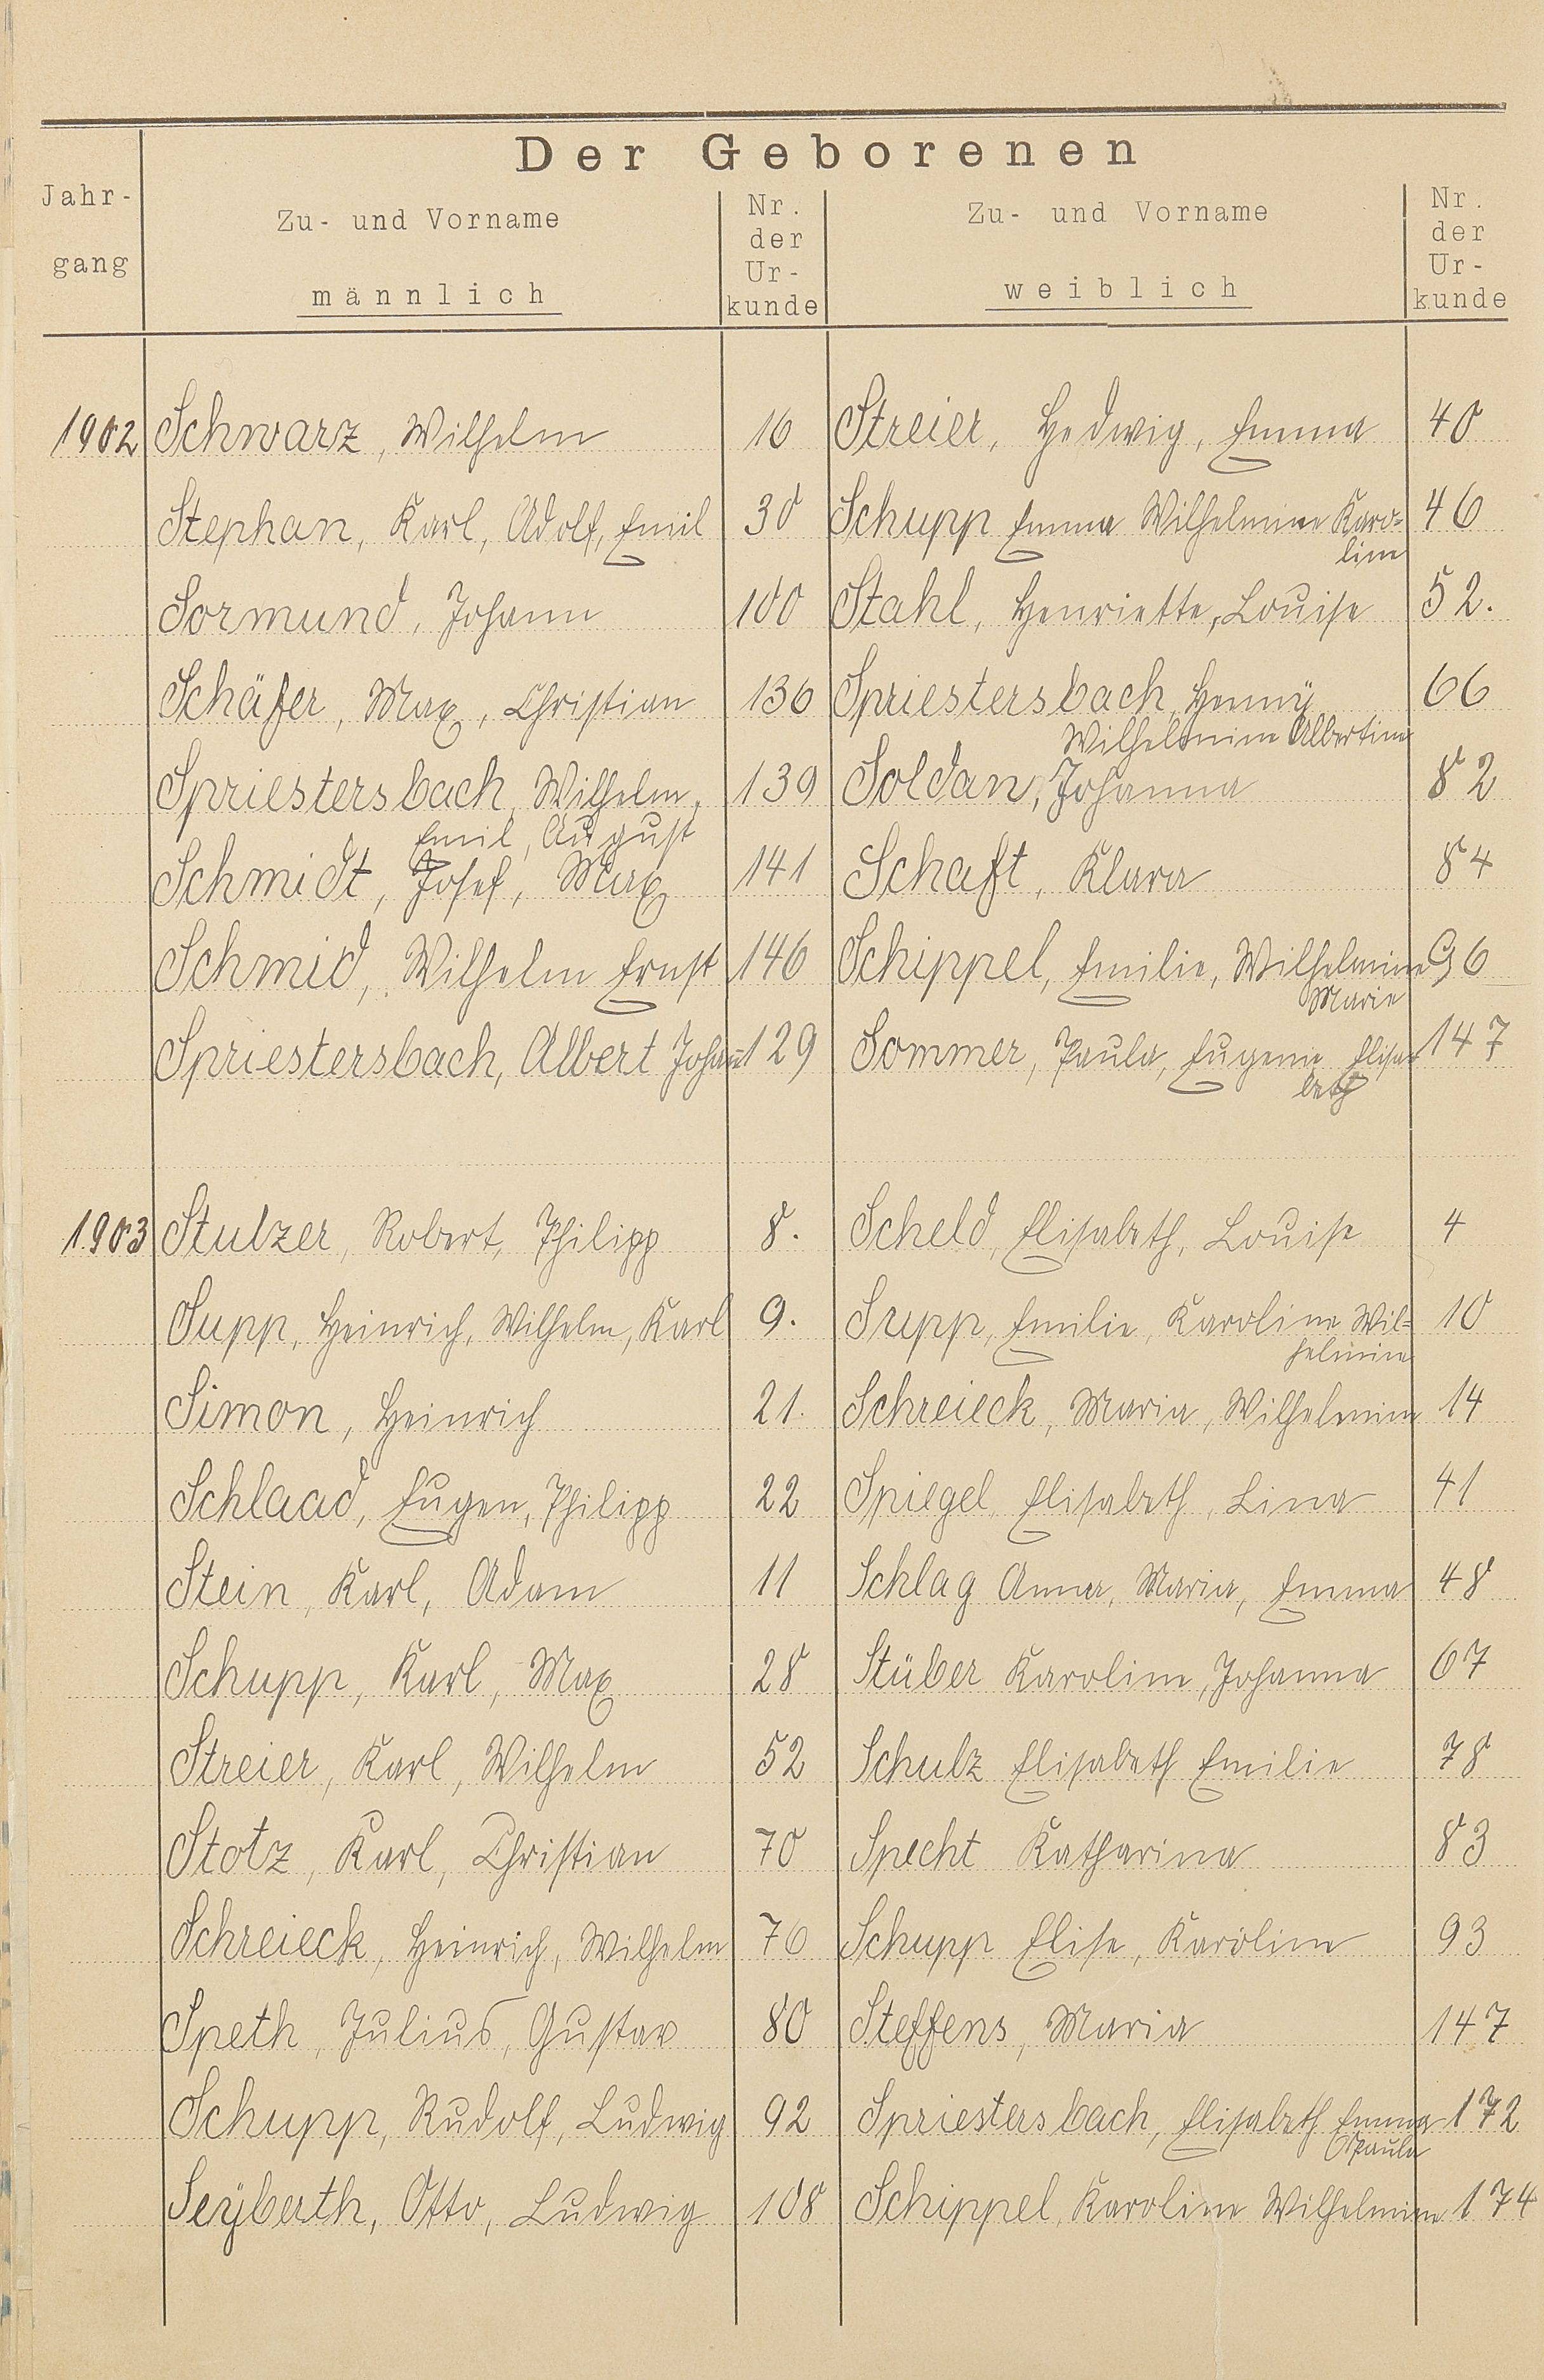 Der Geborenen
Jahr-
gang
Zu- und Vorname
männlich
Nr.
der
Ur-
kunde
Zu- und Vorname
weiblich
Nr.
der
Ur-
kunde
1902 Schwarz, Wilhelm 16 Streier, Hedwig, Emma 40
Stephan, Karl, Adolf, Emil 30 Schupp Emma Wilhelmine Karo-
line 46
Sormund, Johann 100 Stahl, Henriette, Louise 52.
Schäfer, Max, Christian 136 Spriestersbach, Henny 66
Wilhelmine Albertine
Spriestersbach, Wilhelm, 139 Soldan, Johanna 82
Emil, August
Schmidt, Josef, Max 141 Schaft, Klara 84
Schmid, Wilhelm Ernst 146 Schippel, Emilie, Wilhelmine 96
Marie
Spriestersbach, Albert Johann 129 Sommer, Paula, Eugenie Elisa-
beth 147
1903 Stulzer, Robert, Philipp 8. Scheld, Elisabeth, Louise 4
Supp, Heinrich, Wilhelm, Karl 9. Supp, Emilie, Karoline Wil-
helmine 10
Simon, Heinrich 21. Schreieck, Maria, Wilhelmine 14
Schlaad, Eugen, Philipp 22 Spiegel, Elisabeth, Lina 41
Stein, Karl, Adam 11 Schlag Anna, Maria, Emma 48
Schupp, Karl, Max 28 Stüber Karoline, Johanna 67
Streier, Karl, Wilhelm 52 Schulz Elisabeth Emilie 78
Stotz, Karl, Christian 70 Specht Katharina 83
Schreieck, Heinrich, Wilhelm 76 Schupp Elise, Karoline 93
Speth, Julius, Gustav 80 Steffens, Maria 147
Schupp, Rudolf, Ludwig 92 Spriestersbach, Elisabeth Emma 172
Paula
Seÿberth, Otto, Ludwig 108 Schippel, Karoline Wilhelmine 174